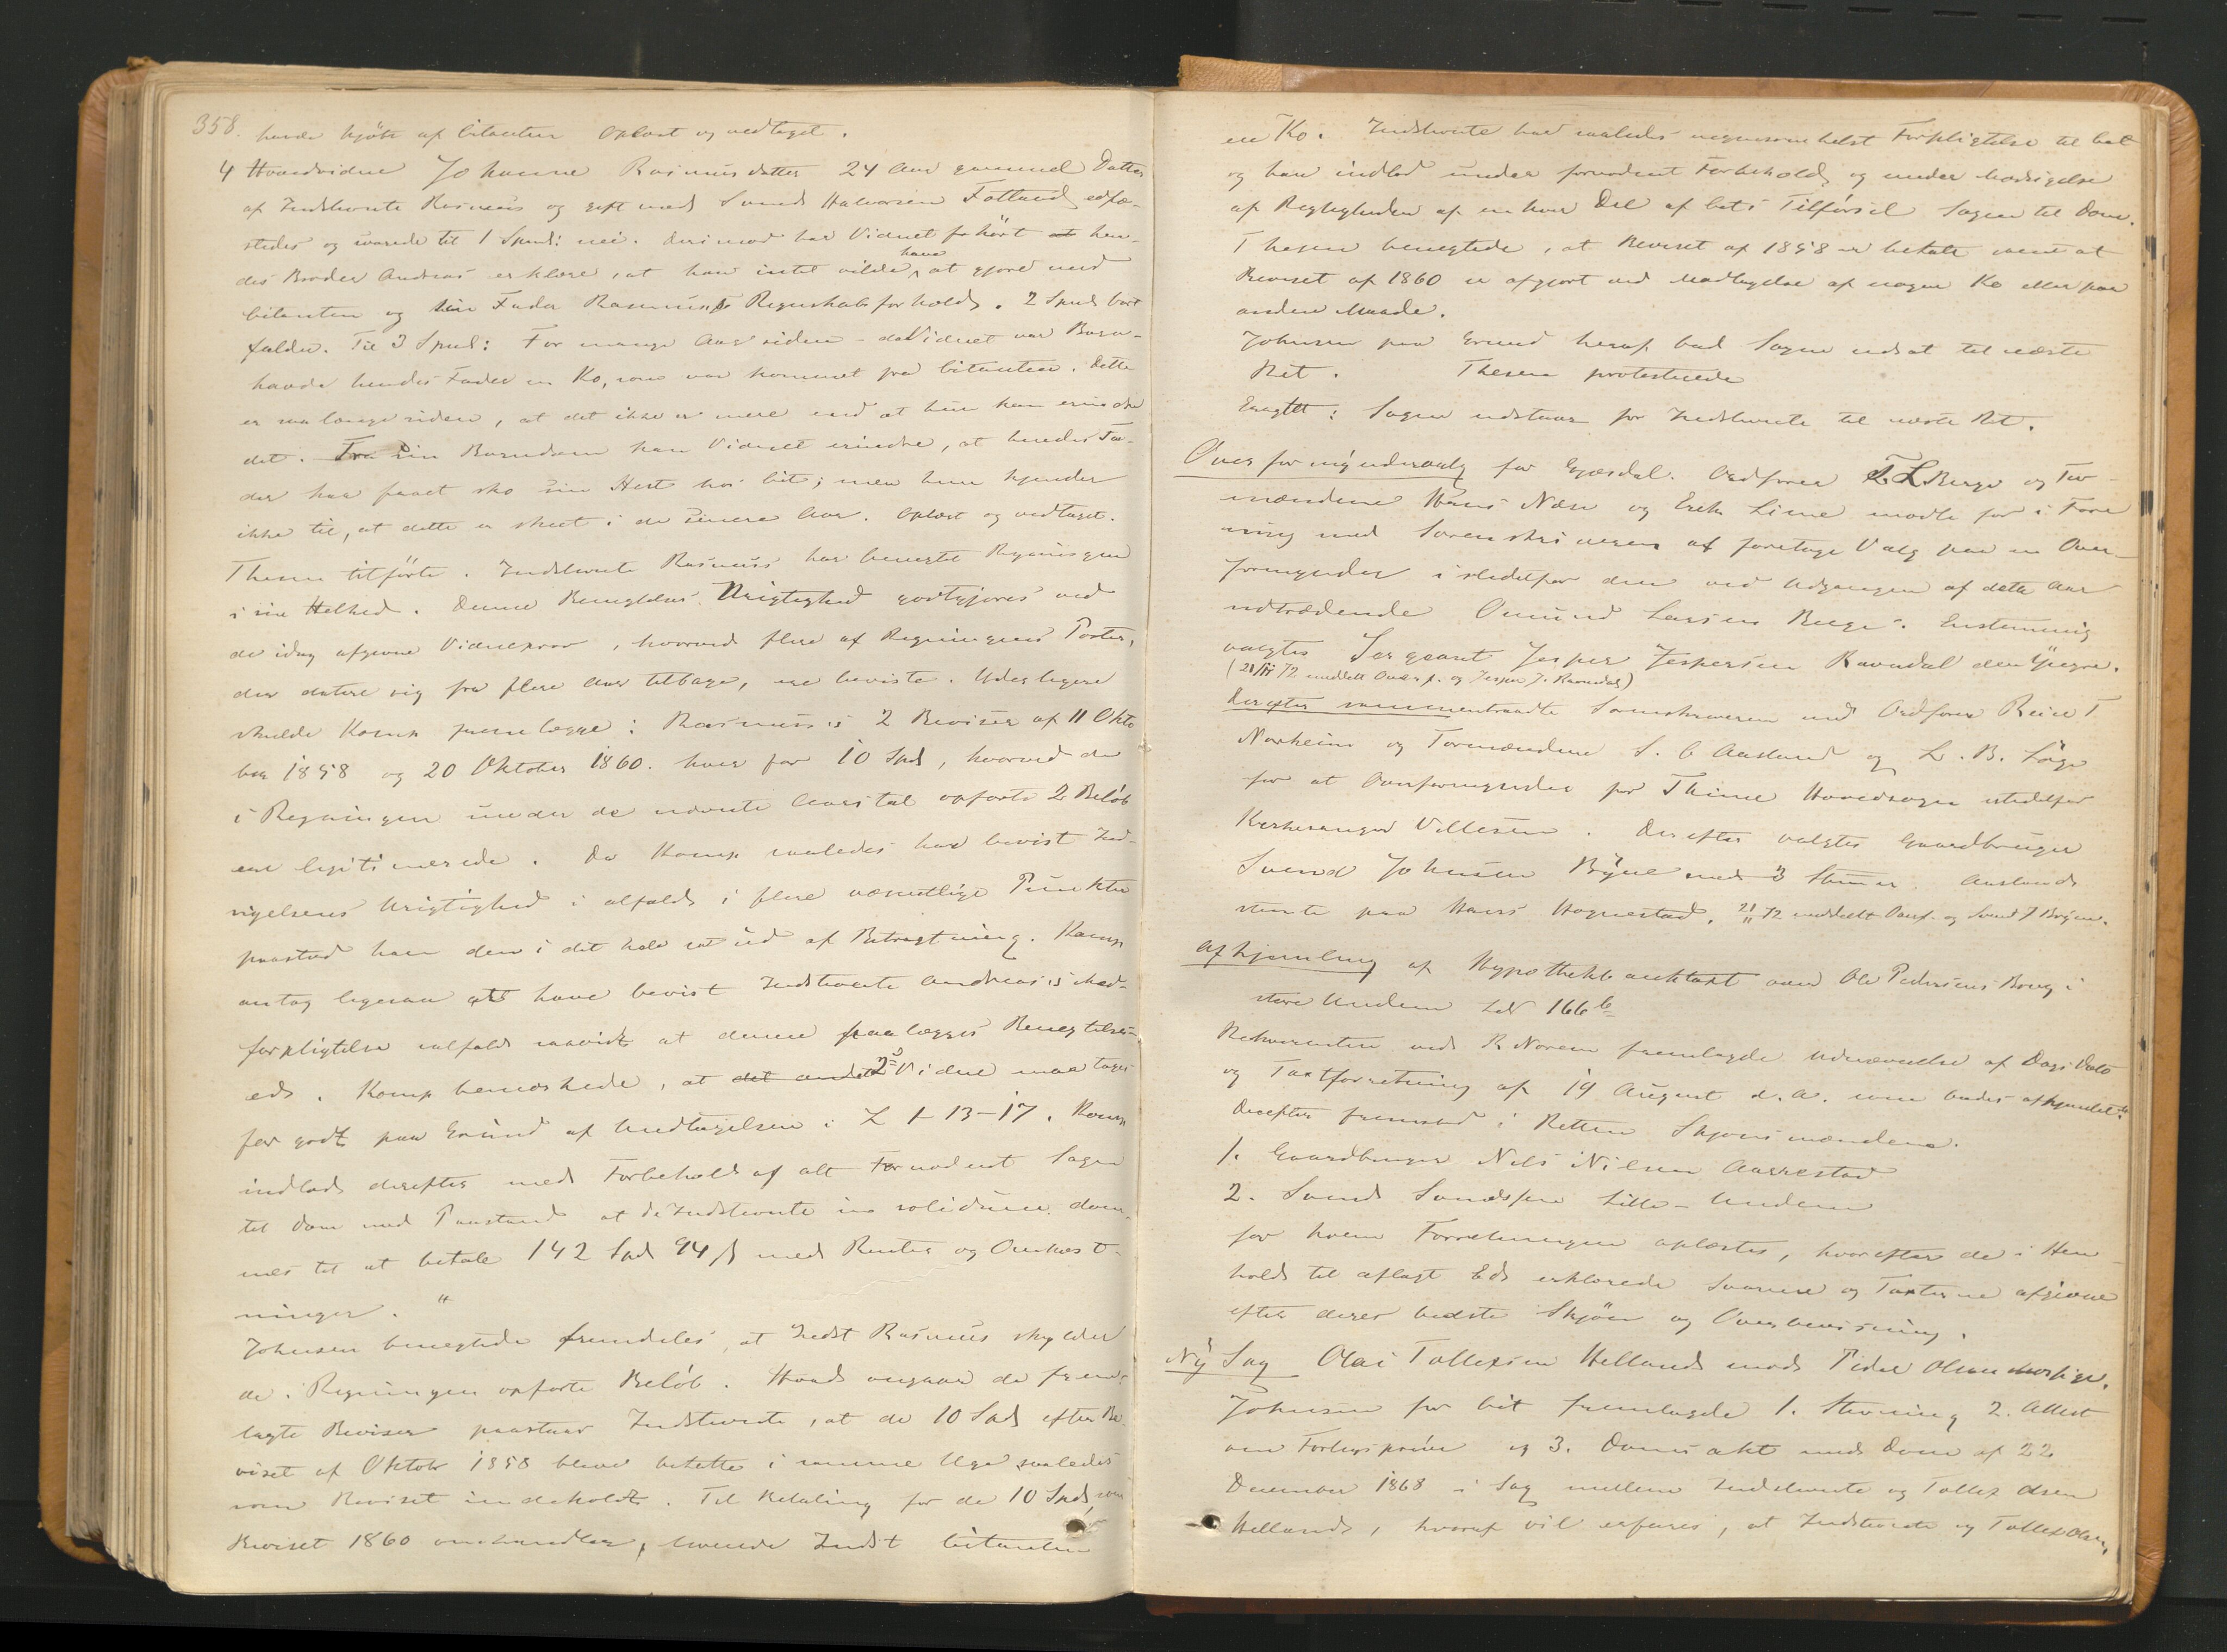 358.
havde kjöbt af Citanten Oplæst og vedtaget.
4 Hovedvidne Johanne Rasmusdatter 24 Aar gammel Datter
af Indstevnte Rasmus og gift med Svend Halvorsen Fotland edfæ-
stedes og svarede til 1 Spml: nei. Derimod har Vidnet hört at hen-
des Broder Andreas erklære, at han intet vilde have at gjöre med
Citanten og sin Fader Rasmus's Regnskabsforhold. 2 Spml bort
falder. Til 3 Spml: For mange Aar siden - da Vidnet var Barn -
havde hendes Fader en Ko, som var kommet fra Citanten. Dette
er saa længe siden, at det ikke er mere end at hun kan erindre
det. Fra sin Barndom kan Vidnet erindre, at hendes Fa-
der har faaet sko sin Hest hos Cit; men hun kjender
ikke til, at dette er skeet i de senere Aar. Oplæst og vedtaget.
Thesen tilförte. Indstevnte Rasmus har benegtet Regningen
i sin Helhed. Denne Benegtelses Urigtighed godtgjöres ved
de idag afgivne Vidneprov, hvorved flere af Regningens Poster,
der datere sig fra flere Aar tilbage, ere beviste. Yderligere
skulde Komp fremlægge: Rasmus's 2 Beviser af 11 Okto
ber 1858 og 20 Oktober 1860. hver for 10 Spd, hvorved de
i Regningen under de nævnte Aarstal opförte 2 Belöb
ere legitimerede. Da Komp saaledes har bevist Ind-
sigelsens Urigtighed i alfald i flere væsentlige Punkter
paastod han den i det hele sat ud af Betragtning. Komp
antog ligesaa at have bevist Indstevnte Andreas's Med-
forpligtelse ialfald saavidt at denne paalægges Benegtelses-
ed. Komp bemærkede, at det andet 2det Vidne maa tages
for godt paa Grund af Undtagelsen i L 1-13-17. Komp
indlod derefter med Forbehold af alt Fornödent Sagen
til Dom med Paastand at de Indstevnte in solidum döm-
mes til at betale 142 Spd 94 ß med Renter og Omkost-
ninger."
Johnsen benegtede fremdeles, at Indst Rasmus skylder
de i Regningen opförte Belöb. Hvad angaar de frem-
lagte Beviser paastaar Indstevnte, at de 10 Spd efter Be-
viset af Oktobr 1858 bleve betalte i samme Uge saaledes
som Beviset indeholdt. Til Betaling for de 10 Spd, som
Beviset 1860 omhandler, leverede Indst Citanten
en Ko. Indstevnte har saaledes nogensomhelst Forpligtelse til Cit
og han indlod under fornödent Forbehold og under Modsigelse
af Rigtigheden af enhver Del af Cit's Tilförsel Sagen til Dom.
Thesen benegtede, at Beviset af 1858 er betalt samt at
Beviset af 1860 er afgjort ved Modtagelse af nogen Ko eller paa
anden Maade.
Johnsen paa Grund heraf bad Sagen udsat til næste
Ret. Thesen protesterede
Eragtet: Sagen udstaar for Indstevnte til næste Ret.
Overformyndervalg for Gjesdal. Ordförer T L Berge og For-
mændene Hans Næse og Erik Lime mödte for i Fore
ning med Sorenskriveren at foretage Valg paa en Over-
formynder istedetfor den ved Udgangen af dette Aar
udtrædende Omund Larsen Berge. Enstemmig
valgtes Sergeant Jesper Jespersen Ravndal den Yngre.
(21/11 72 meddelt Overf. og Jesper J. Ravndal)
Derefter sammentraadte Sorenskriveren med Ordförer Reier T
Norheim og Formændene S. C Aasland og L. B. Löge
for at Overformynder for Thime Hovedsogn istedetfor
Kirkesanger Vellesen. Derefter valgtes Gaardbruger
Svend Johnsen Bryne med 3 Stemmer. Aasland
stemte paa Hans Hognestad. 21/11 72 meddelt Overf. og Svend J Bryne.
Afhjemling af Hypothekbanktaxt over Ole Pedersens Brug i
store Undem LNr 166 b
Rekvirenten ved R Norem fremlagde Udnævnelse af Dags Dato
og Taxtforretning af 19 August d. A. som bades afhjemlet.
Derefter fremstod i Retten Skjönsmændene.
1. Gaardbruger Nils Nilsen Aarrestad
2. Svend Svendsen Lille-Undem
for hvem Forretningen oplæstes, hvorefter de i Hen-
hold til aflagt Ed erklærede Svarene og Taxterne afgivne
efter deres bedste Skjön og Overbevisning.
Ny Sag Olai Tollefsen Helland mod Peder Olsen
Johnsen for Cit fremlagde 1. Stevning 2. Attest
om Forligspröve og 3. Domsakt med Dom af 22
December 1868 i Sag mellem Indstevnte og Tollef Olsen
Helland, hvoraf vil erfares, at Indstevnte og Tollef Olsen,